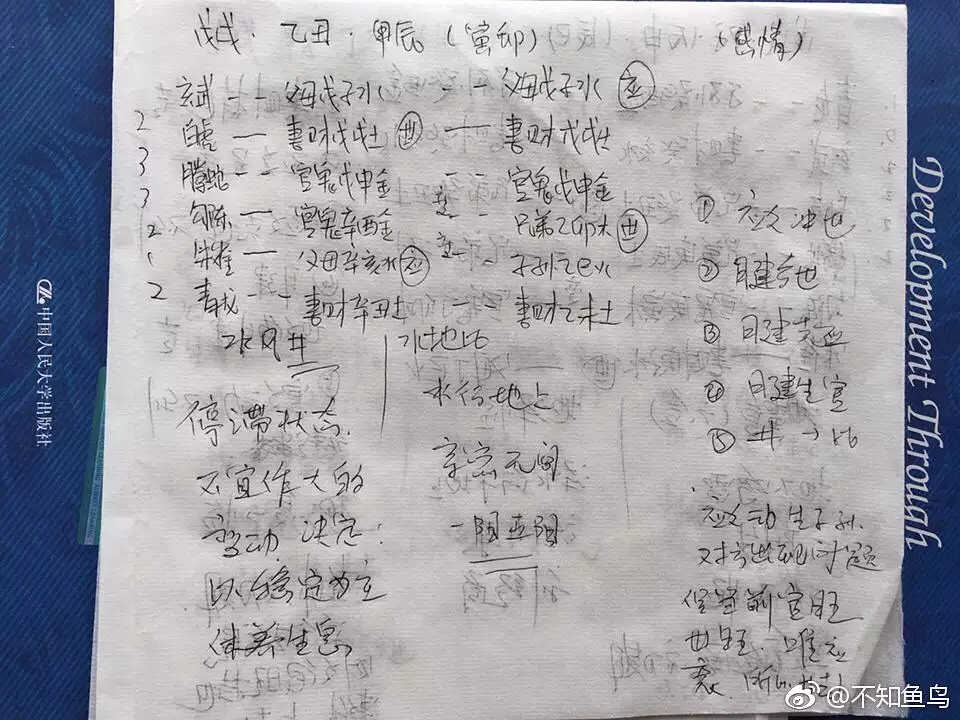 戊戌·乙丑·甲辰(寅卯) (感情)
玄武 -- 父母戊子水 -- 父母戊子水 应
2 白虎 — 妻财戊戌土 世 — 妻财戊戌土
3 腾蛇 -- 官鬼戊申金 -- 官鬼戊申金
3 勾陈 — 官鬼辛酉金 -- 兄弟乙卯木 世
2 朱雀 — 父母辛亥水 应 -- 子孙乙巳火
2 青龙 -- 妻财辛丑土 妻财乙未土
水风井
停滞状态.
不宜作大的
变动 决定:
以稳定为主
休养生息
水地比
水行地上
亲密无间
一阳五阴
① 应爻冲世
② 日建合世
③ 月建克应
④ 月建生官
⑤ 井→比
应爻动生子孙.
对方出现问题
官旺
世旺. 唯应
衰.
Development Through
中国人民大学出版社
@不知鱼鸟